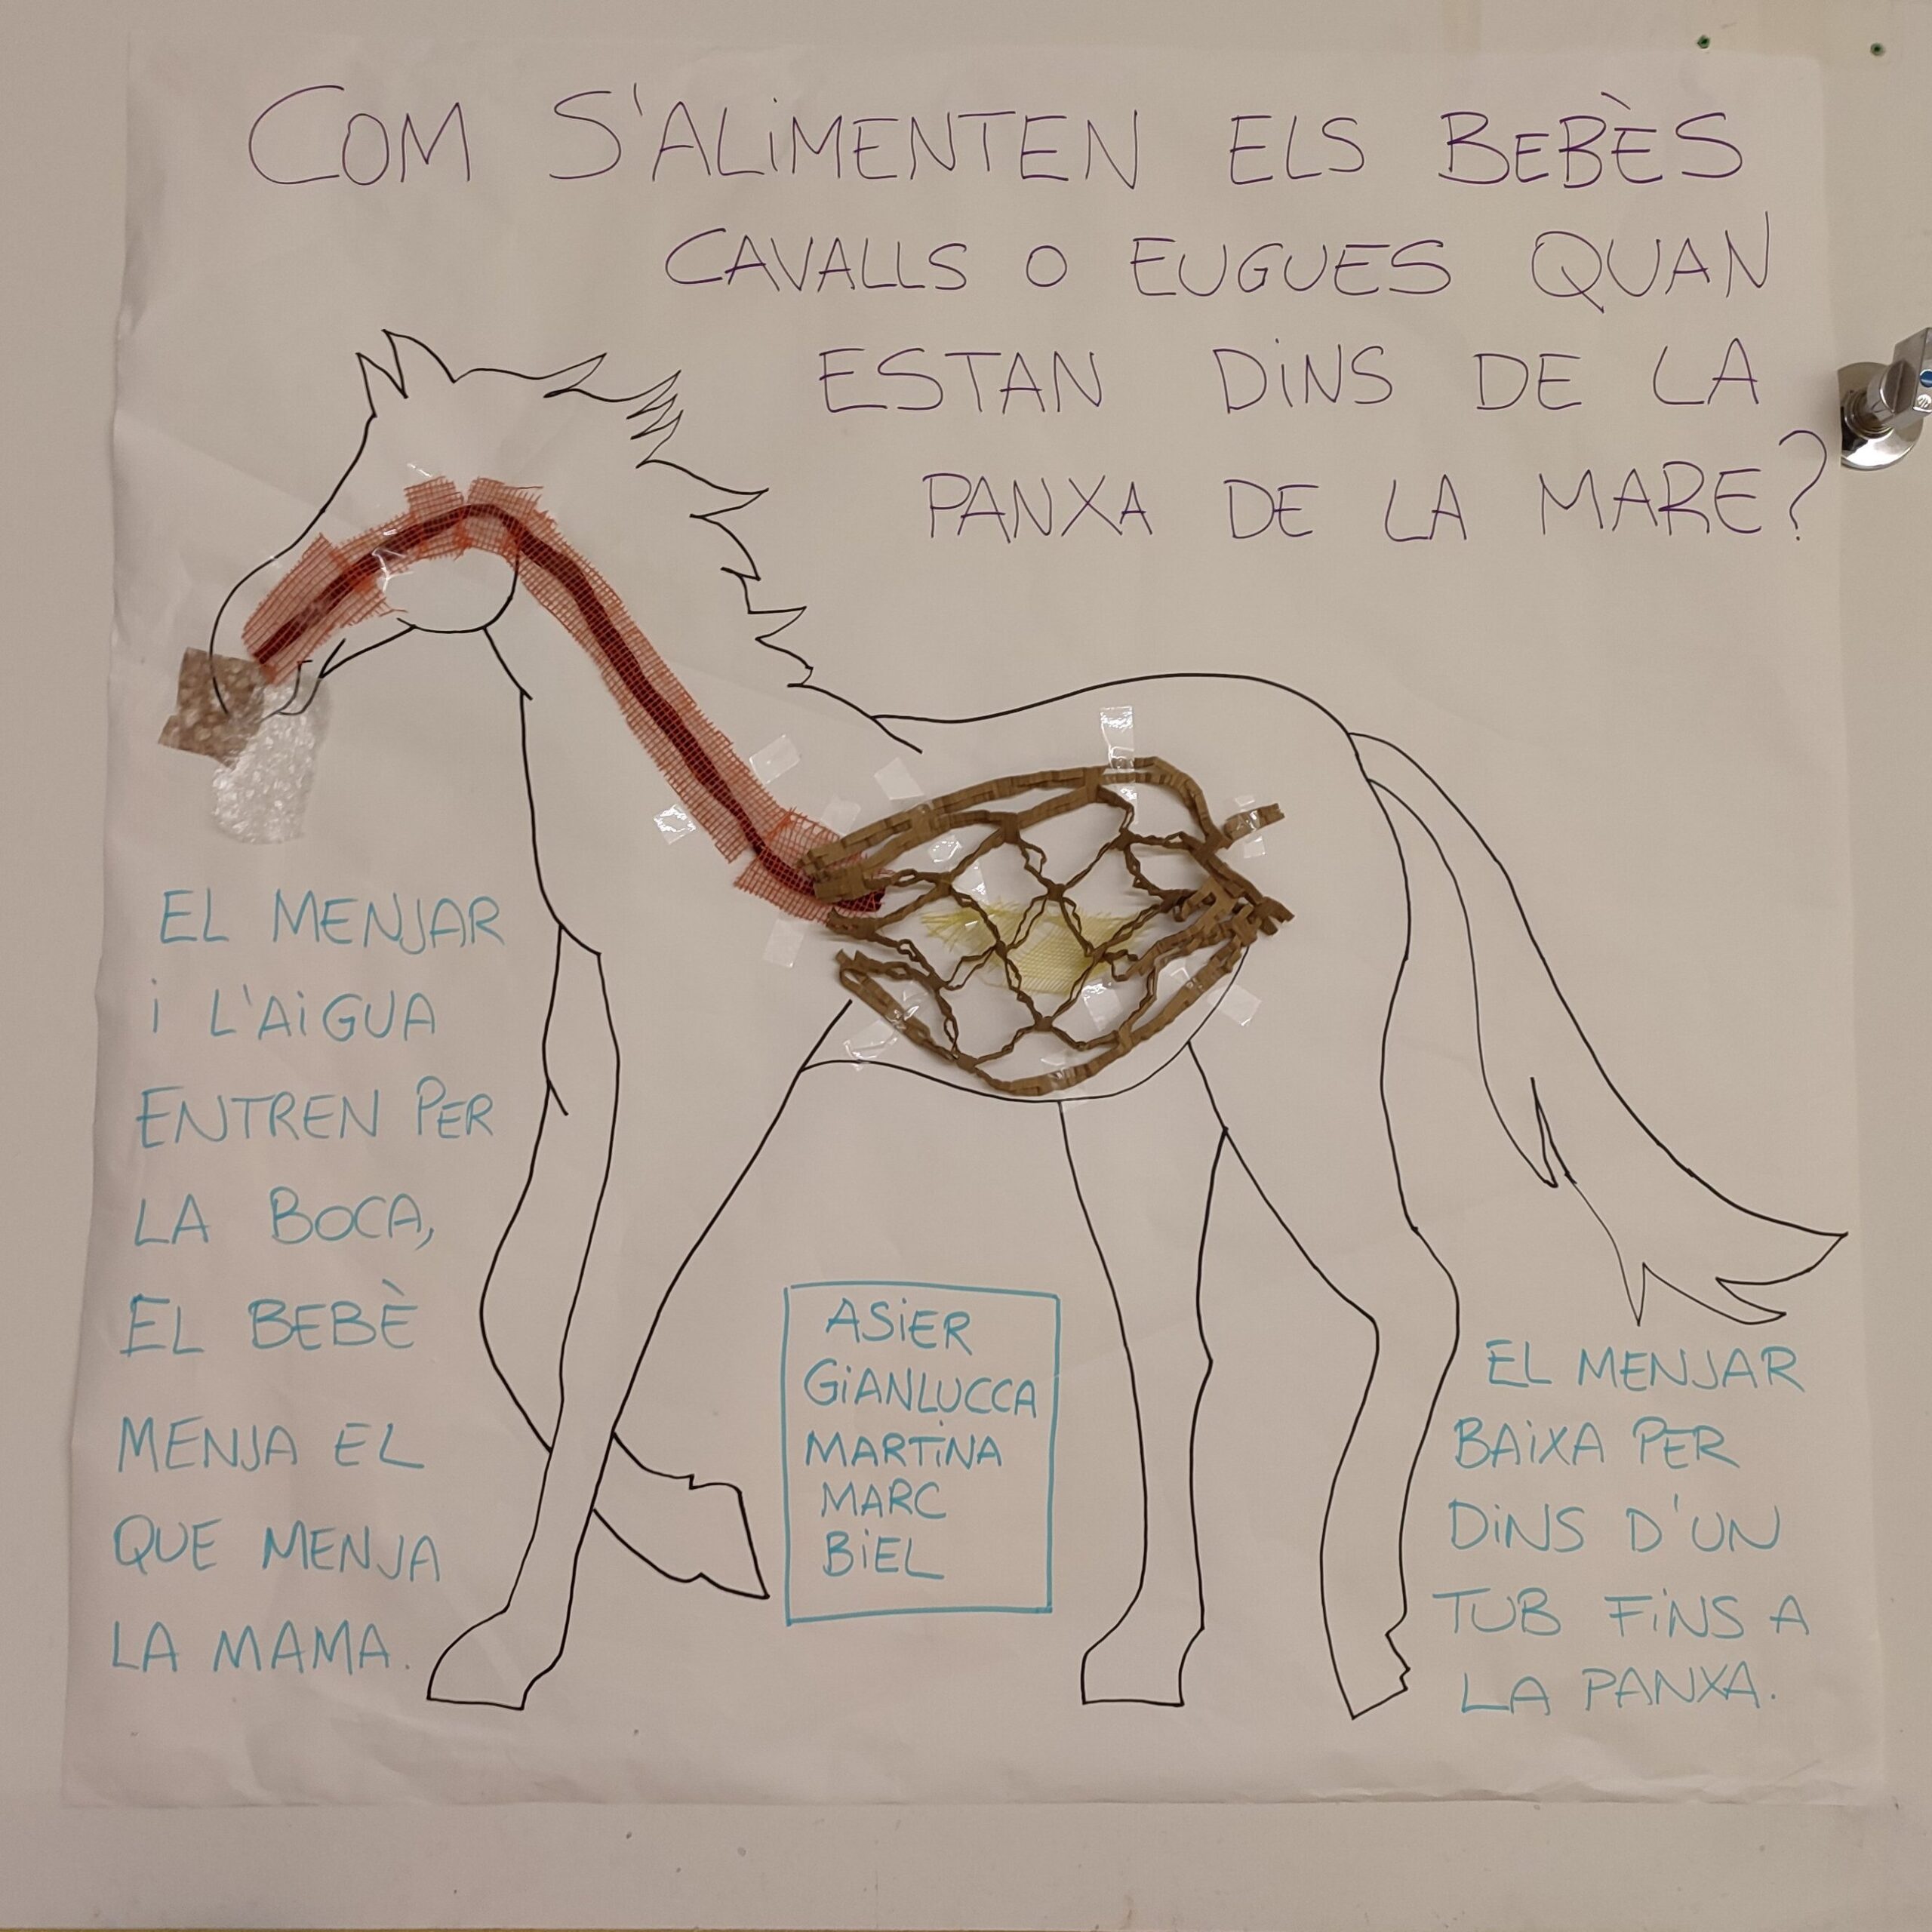 COM S'ALIMENTEN ELS BEBÈS
CAVALLS O EUGUES QUAN
ESTAN DINS DE LA
PANXA DE LA MARE?
EL MENJAR
I L'AIGUA
ENTREN PER
LA BOCA,
EL BEBÈ
MENJA EL
QUE MENJA
LA MAMA.
ASIER
GIANLUCCA
MARTINA
MARC
BIEL
EL MENJAR
BAIXA PER
DINS D'UN
TUB FINS A
LA PANXA.